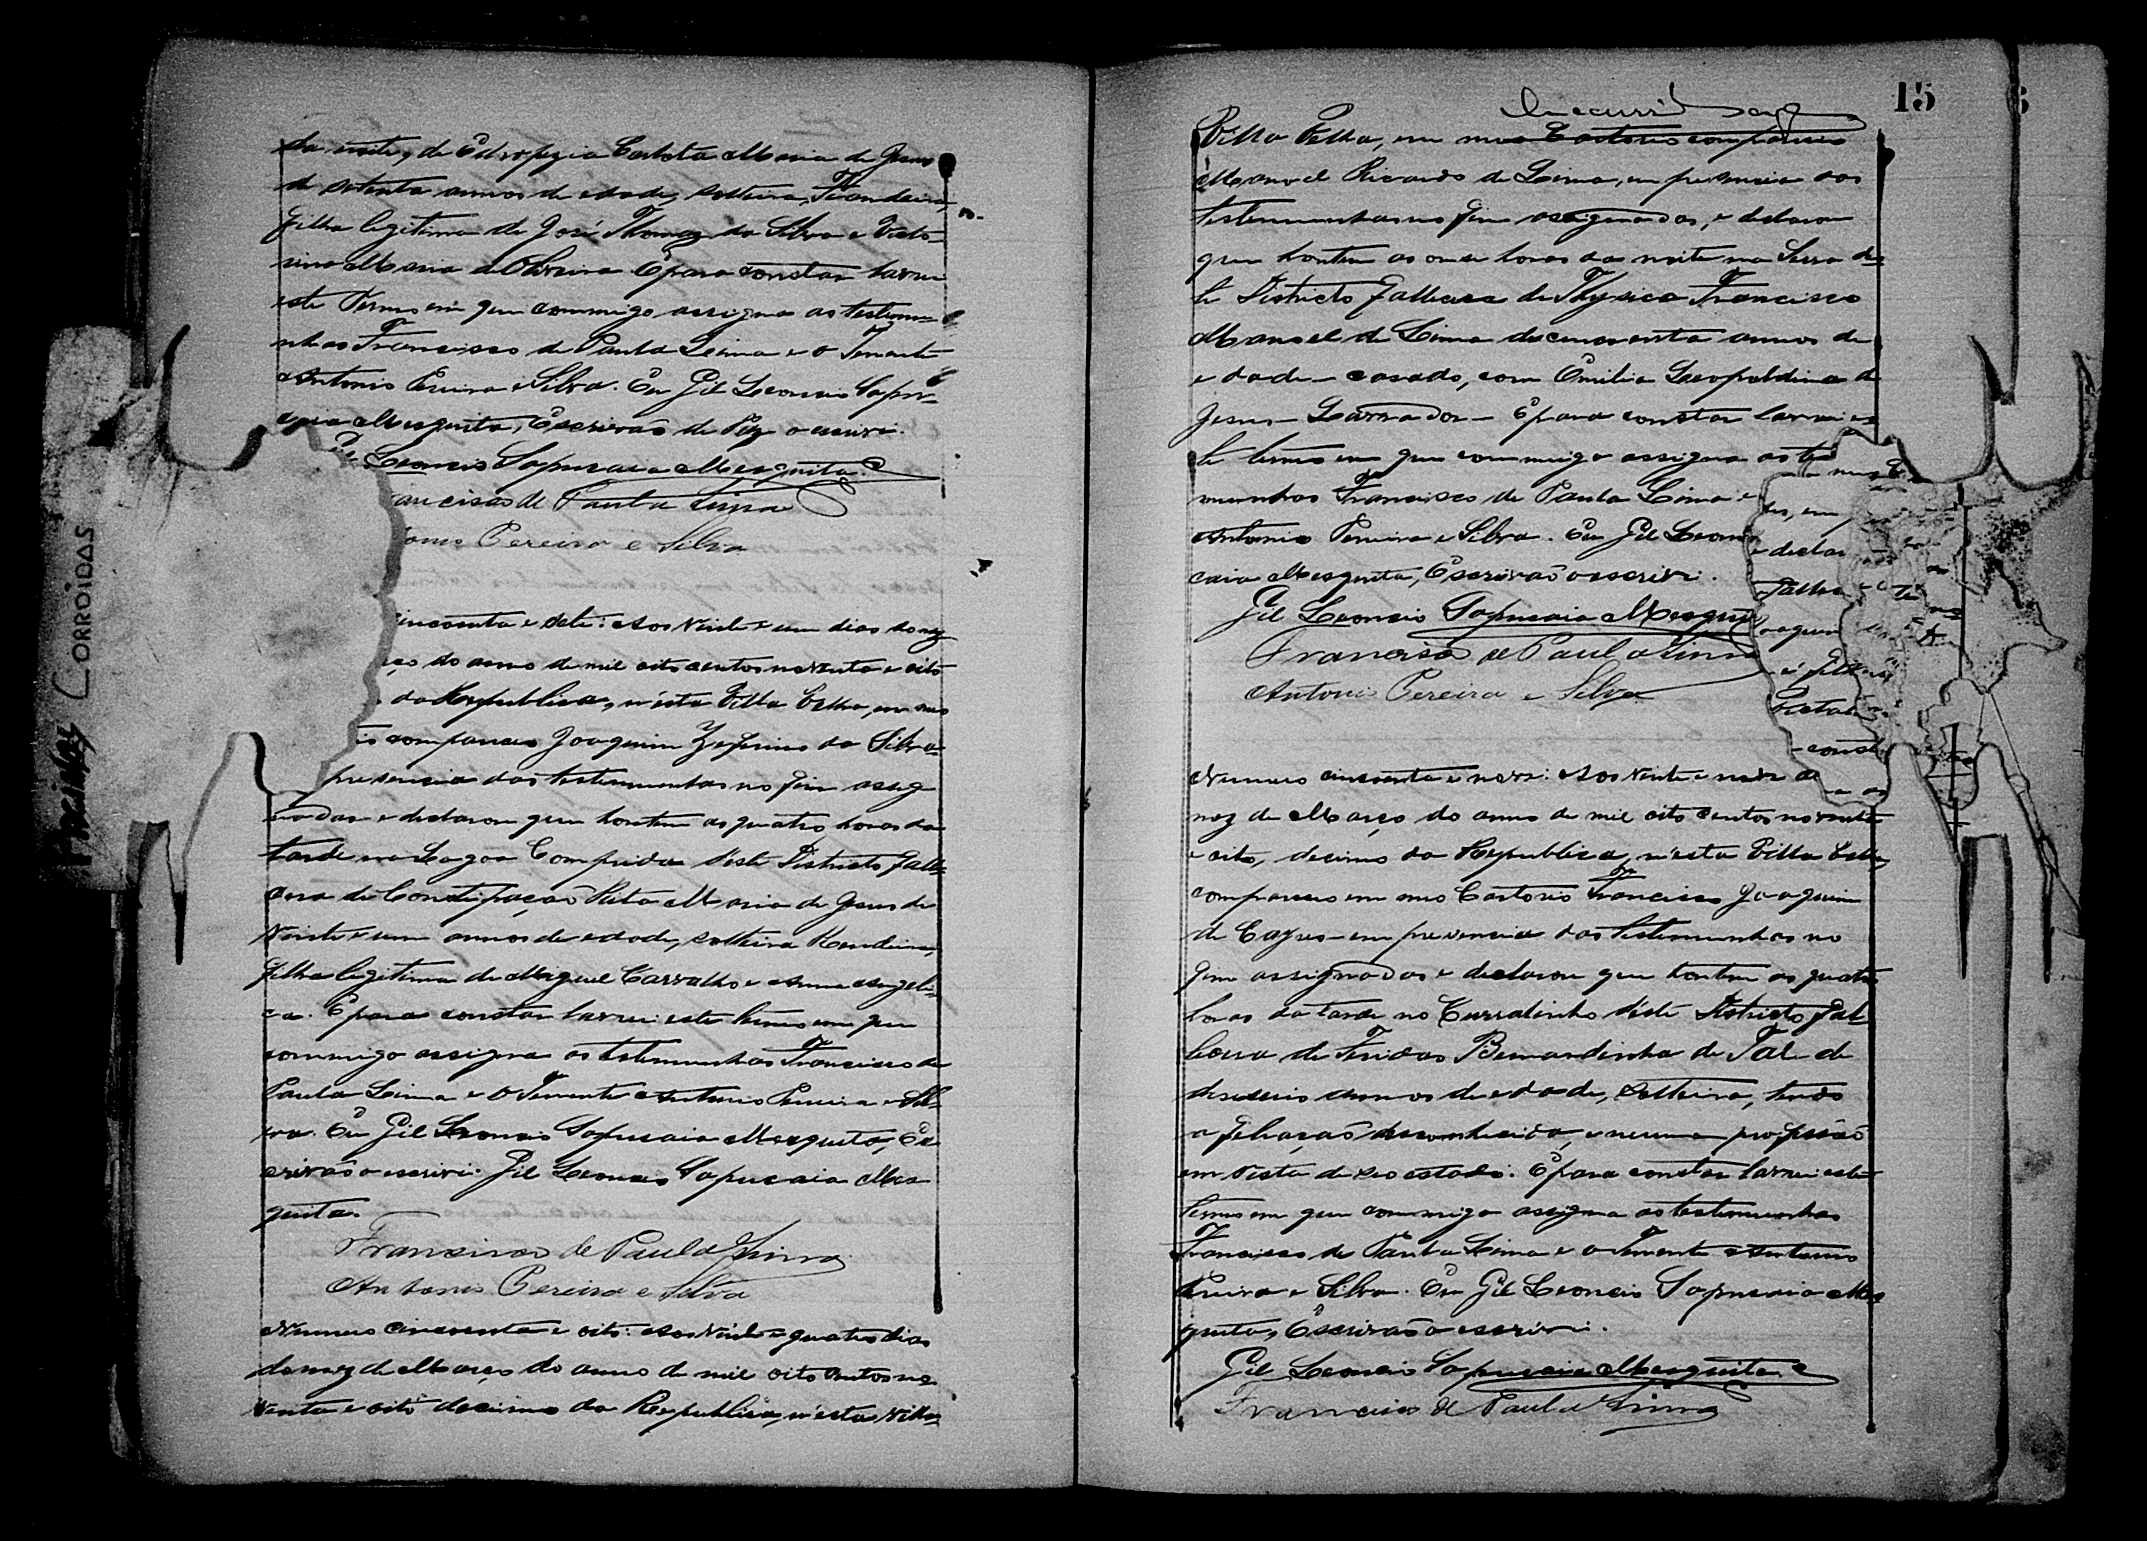 da noite, de Hidropezia Carlota Maria de Jesus
de setenta annos de edade, solteira, Fiandeira,
filha legitima de José Thomaz da Silva e Victo-
rina Maria de Oliveira E para constar lavrei
este Termo em que commigo assigna as testemu-
nhas Francisco de Paula Lima e o Tenente
Antonio Pereira e Silva. Eu Gil Leoncio Sapu-
caia Mesquita, Escrivão de Paz o escrevi.
Gil Leoncio Sapucaia Mesquita
ancisco de Paula Lima
tonio Pereira e Silva
incoenta e sete: Aos vinte e um dias do mez
ço, do anno de mil oito centos noventa e oito
da Republica, n'esta Villa Velha, em meo
io compareceo Joaquim Zeferino da Silva
presencia das testemunhas no fim assig
nadas e declarou que hontem as quatro horas da
tarde na Lagoa Comprida deste Districto falle-
cera de Constipação Rita Maria de Jesus de
vinte e um annos de edade, solteira Rendeira,
filha legitima de Miguel Carvalho e Anna Angeli-
ca. E para constar lavrei este termo em que
commigo assigna as testemunhas Francisco de
Paula Lima e o Tenente Antonio Pereira e Sil-
va. Eu Gil Leoncio Sapucaia Mesquita, Es
crivão o escrevi. Gil Leoncio Sapucaia Mes
quita.
Francisco de Paula Lima
Antonio Pereira e Silva
Numero cincoenta e oito: Aos vinte e quatro dias
do mez de Março do anno de mil oito centos no
venta e oito decimo da Republica, n'esta Villa
PAGINAS CORROIDAS
15
Villa Velha, em meo Cartorio compareceo
Manoel Ricardo de Lima, em presencia das
testemunhas no fim assignadas, e declarou
que hontem as onze horas da noite na Serra des-
te Districto fallecera de Thysica Francisco
Manoel de Lima de cincoenta annos de
edade - casado, com Emilia Leopoldina de
Jesus - Lavrador - E para constar lavrei es
te termo em que commigo assigna as tes
munhas Francisco de Paula Lima e
Antonio Pereira e Silva. Eu Gil Leon
caia Mesquita, Escrivão o escrevi.
Gil Leoncio Sapucaia Mesqui
Francisco de Paula Lima
Antonio Pereira e Silva
Numero cincoenta e nove: Aos vinte e nove de
mez de Março do anno de mil oito centos noventa
e oito, decimo da Republica, n'esta Villa Velha,
compareceo em meo Cartorio Francisco Joaquim
de Cazus - em presencia das testemunhas no
fim assignadas e declarou que hontem as quatro
horas da tarde no Curralinho deste Districto fal-
lecera de Feridas Bernardinha de Tal de
deseseis annos de edade, solteira, sendo
a filiação desconhecida, e nenuma profissão
em vista de seo estado. E para constar lavrei este
termo em que commigo assigna as testemunhas
Francisco de Paula Lima e o Tenente Antonio
Pereira e Silva. Eu Gil Leoncio Sapucaia Mes
quita, Escrivão o escrevi.
Gil Leoncio Sapucaia Mesquita
Francisco de Paula Lima